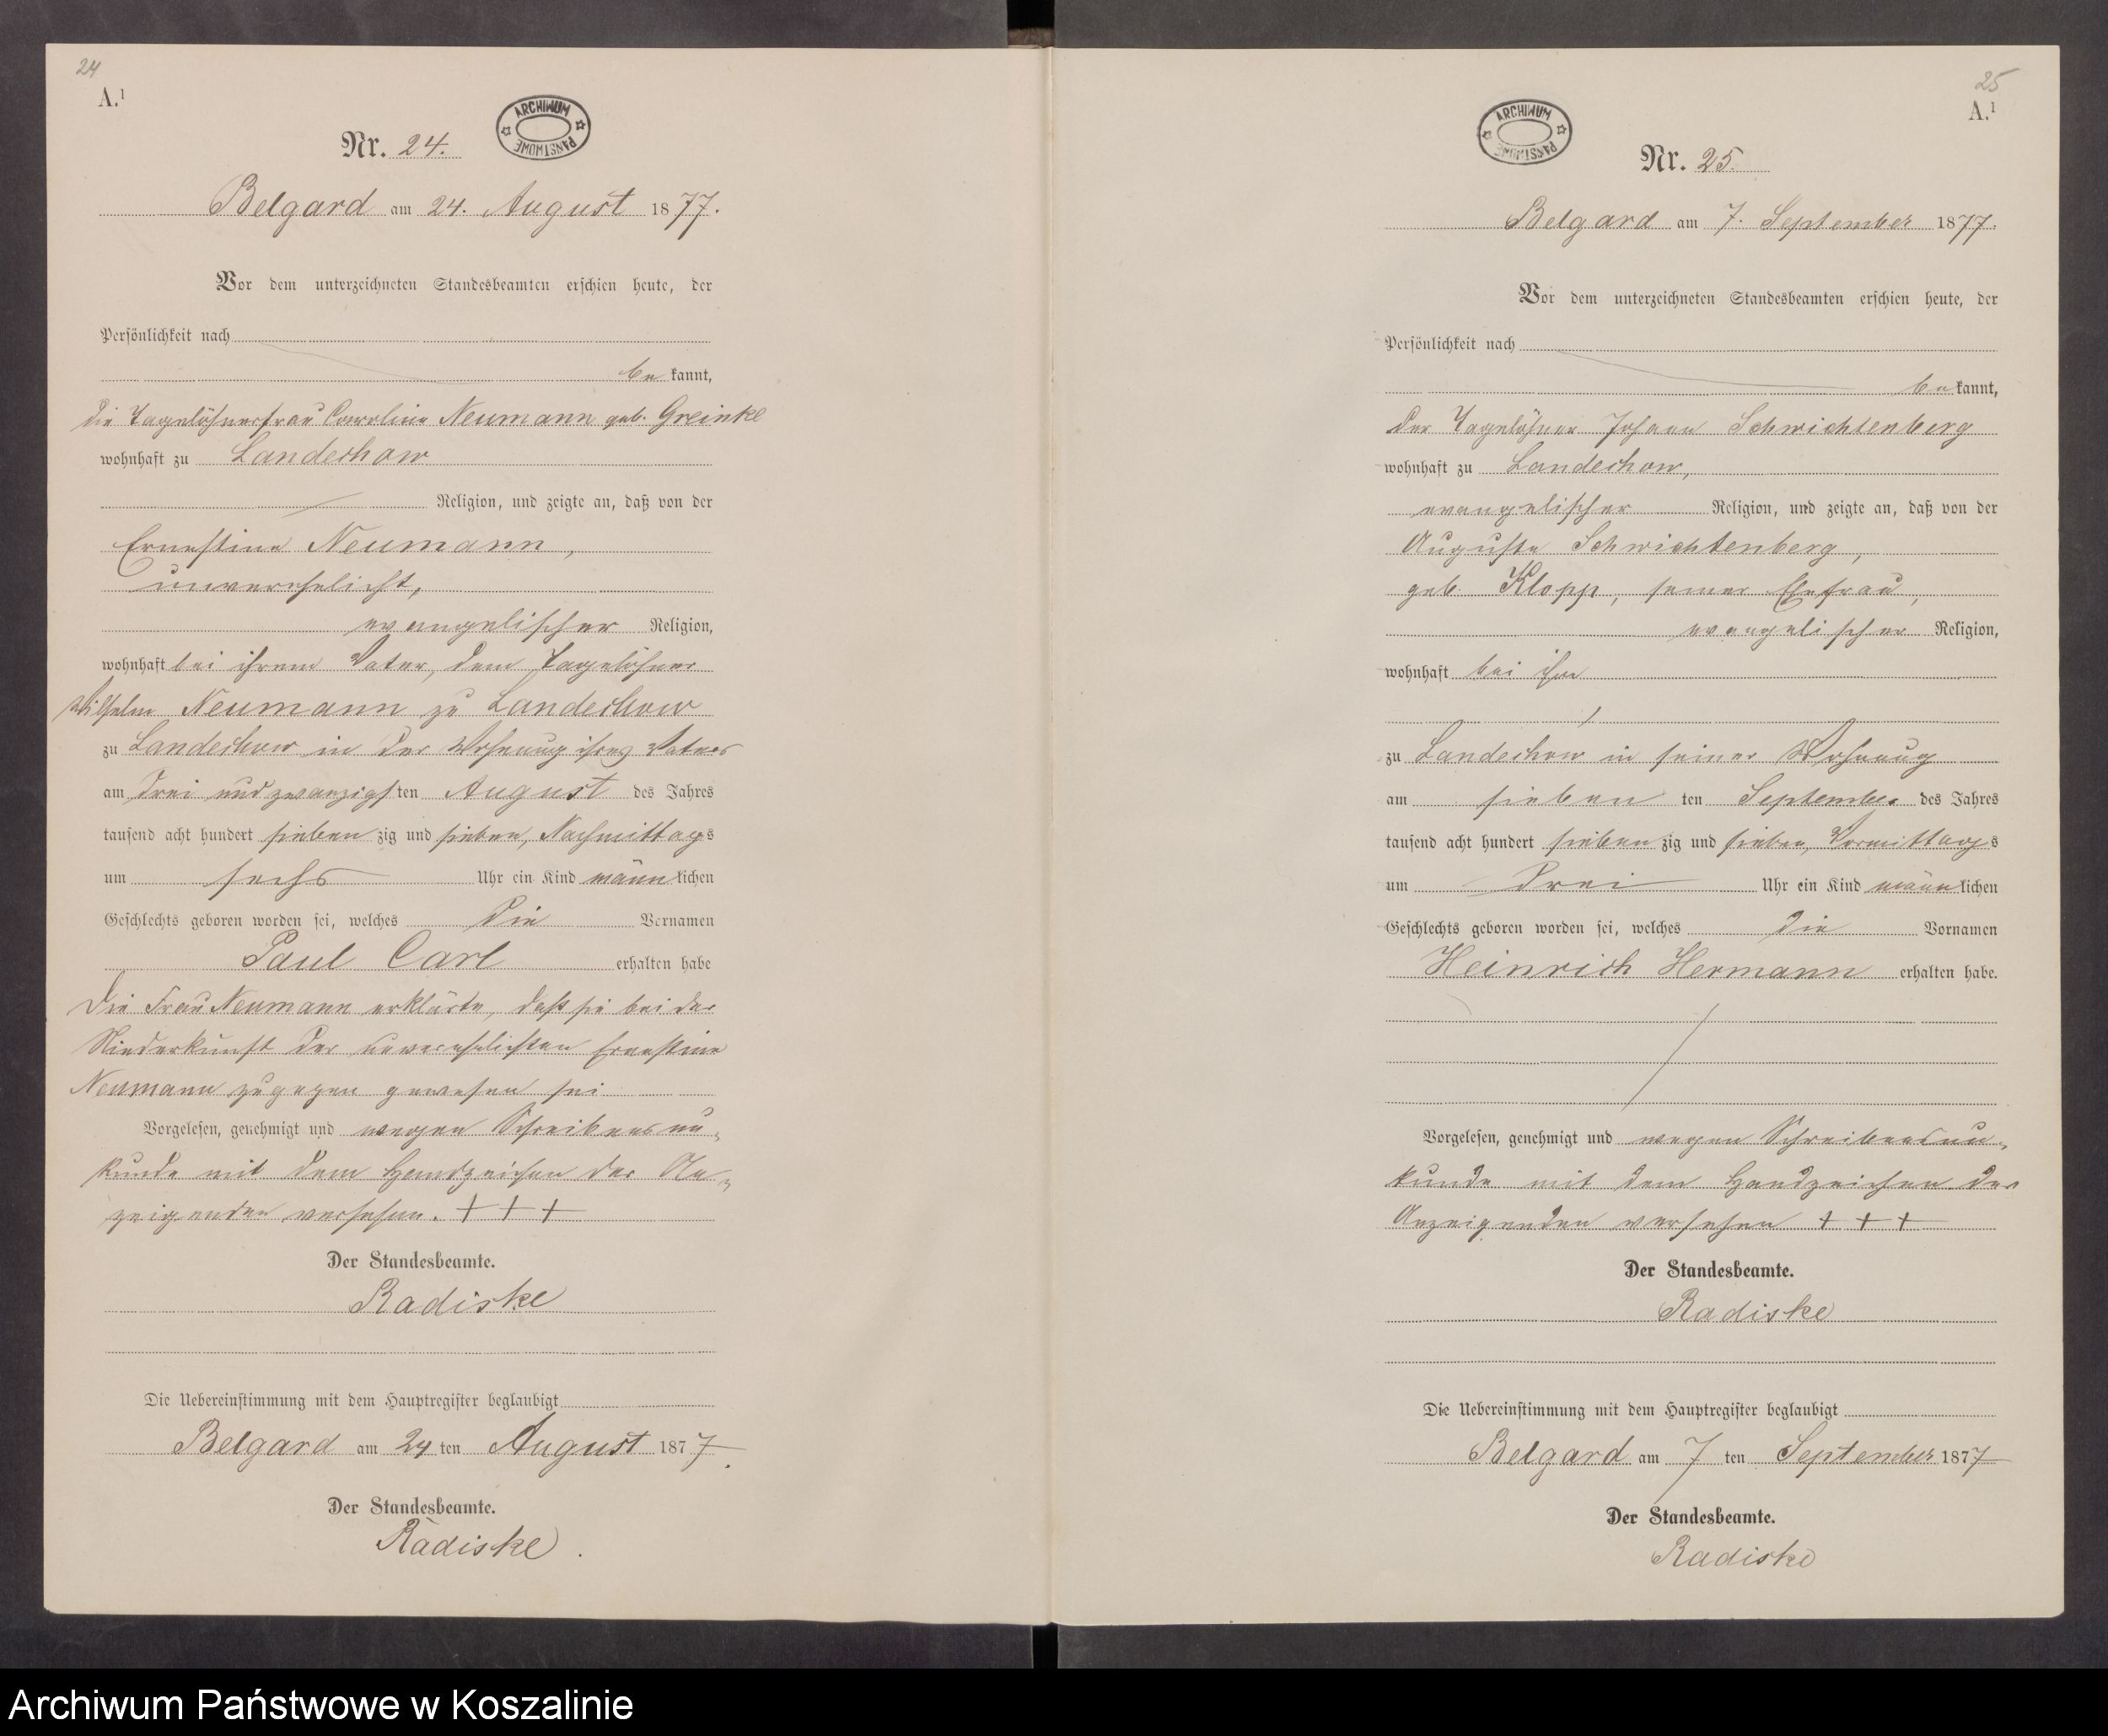 24
A.¹
ARCHIWUM PAŃSTWOWE
Nr. 24.
Belgard am 24. August 1877.
Vor dem unterzeichneten Standesbeamten erschien heute, der
Persönlichkeit nach
bekannt,
die Tagelöhnerfrau Caroline Neumann geb. Greinke
wohnhaft zu Landechow
Religion, und zeigte an, daß von der
Ernestine Neumann,
unverehelicht,
evangelischer Religion,
wohnhaft bei ihrem Vater, dem Tagelöhner
Wilhelm Neumann zu Landechow
zu Landechow in der Wohnung ihres Vaters
am drei und zwanzigsten August des Jahres
tausend acht hundert siebenzig und sieben, Nachmittags
um sechs Uhr ein Kind männlichen
Geschlechts geboren worden sei, welches die Vornamen
Paul Carl erhalten habe
Die Frau Neumann erklärte, daß sie bei der
Niederkunft der unverehelichten Ernestine
Neumann zugegen gewesen sei
Vorgelesen, genehmigt und wegen Schreibensun-
kunde mit dem Handzeichen der An-
zeigenden versehen. + + +
Der Standesbeamte.
Radiske
Die Uebereinstimmung mit dem Hauptregister beglaubigt
Belgard am 24 ten August 1877.
Der Standesbeamte.
Radiske.
25
A.¹
ARCHIWUM PAŃSTWOWE
Nr. 25.
Belgard am 7. September 1877.
Vor dem unterzeichneten Standesbeamten erschien heute, der
Persönlichkeit nach
bekannt,
der Tagelöhner Johann Schwichtenberg
wohnhaft zu Landechow,
evangelischer Religion, und zeigte an, daß von der
Auguste Schwichtenberg,
geb. Klopp, seiner Ehefrau,
evangelischer Religion,
wohnhaft bei ihm
zu Landechow in seiner Wohnung
am sieben ten September des Jahres
tausend acht hundert siebenzig und sieben, Vormittags
um drei Uhr ein Kind männlichen
Geschlechts geboren worden sei, welches die Vornamen
Heinrich Hermann erhalten habe.
Vorgelesen, genehmigt und wegen Schreibensun-
kunde mit dem Handzeichen des
Anzeigenden versehen + + +
Der Standesbeamte.
Radiske
Die Uebereinstimmung mit dem Hauptregister beglaubigt
Belgard am 7 ten September 1877
Der Standesbeamte.
Radiske
Archiwum Państwowe w Koszalinie